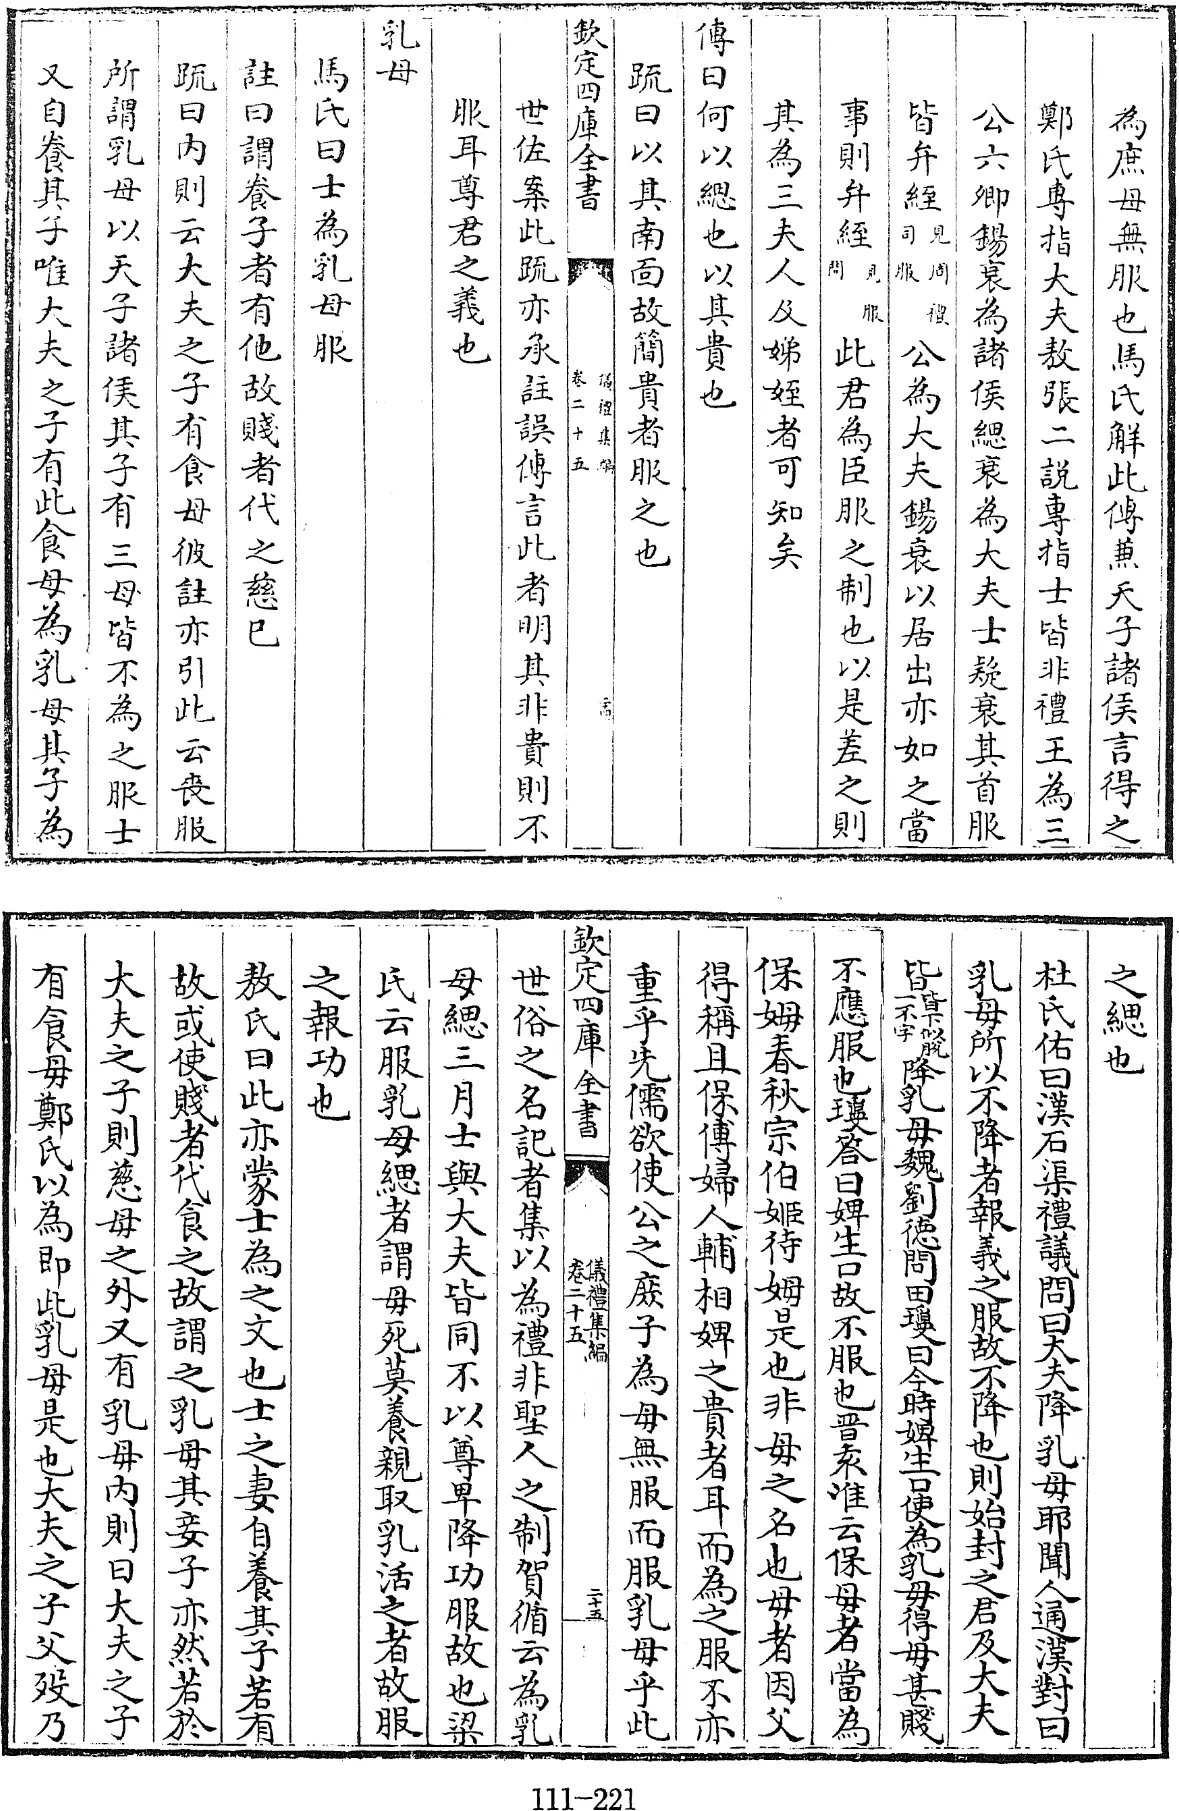 為庶母無服也馬氏解此傳兼天子諸侯言得之
鄭氏專指大夫敖張二説專指士皆非禮王為三
公六卿錫衰為諸侯緦衰為大夫士疑衰其首服
皆弁絰見周禮司服公為大夫錫衰以居出亦如之當
事則弁絰見服問此君為臣服之制也以是差之則
其為三夫人及娣姪者可知矣
傳曰何以緦也以其貴也
疏曰以其南面故簡貴者服之也
欽定四庫全書
儀禮集編
卷二十五
世佐案此疏亦承註誤傳言此者明其非貴則不
服耳尊君之義也
乳母
馬氏曰士為乳母服
註曰謂養子者有他故賤者代之慈已
疏曰内則云大夫之子有食母彼註亦引此云喪服
所謂乳母以天子諸侯其子有三母皆不為之服士
又自養其子唯大夫之子有此食母為乳母其子為
之緦也
杜氏佑曰漢石渠禮議問曰大夫降乳母耶聞人通漢對曰
乳母所以不降者報義之服故不降也則始封之君及大夫
皆皆下似脱一不字降乳母魏劉德問田瓊曰今時婢生口使為乳母得毋甚賤
不應服也瓊答曰婢生口故不服也晋袁准云保母者當為
保姆春秋宗伯姬待姆是也非母之名也母者因父
得稱且保傅婦人輔相婢之貴者耳而為之服不亦
重乎先儒欲使公之庶子為母無服而服乳母乎此
欽定四庫全書
儀禮集編
卷二十五
二十五
世俗之名記者集以為禮非聖人之制賀循云為乳
母緦三月士與大夫皆同不以尊卑降功服故也梁
氏云服乳母緦者謂母死莫養親取乳活之者故服
之報功也
敖氏曰此亦蒙士為之文也士之妻自養其子若有
故或使賤者代食之故謂之乳母其妾子亦然若於
大夫之子則慈母之外又有乳母内則曰大夫之子
有食母鄭氏以為即此乳母是也大夫之子父殁乃
111-221